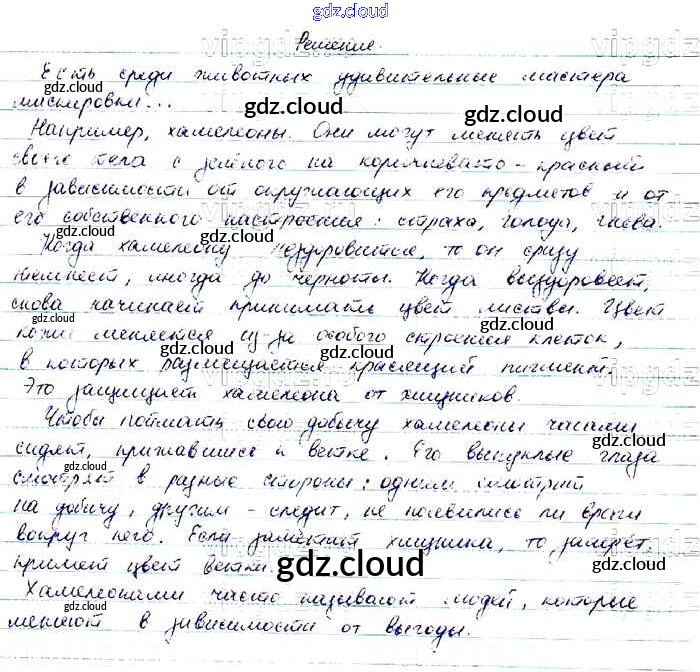 gdz.cloud
Решение.
Есть среди животных удивительные мастера
маскировки...
Например, хамелеоны. Они могут менять цвет
своего тела с зелёного на коричневато-красный
в зависимости от окружающих его предметов и от
его собственного настроения: страха, голода, гнева.
Когда хамелеону нездоровится, то он сразу
темнеет, иногда до черноты. Когда выздоровеет,
снова начинает принимать цвет листвы. Цвет
кожи меняется из-за особого строения клеток,
в которых размещается красящий пигмент.
Это защищает хамелеона от хищников.
Чтобы поймать свою добычу хамелеоны часами
сидят, прижавшись к ветке. Его выпуклые глаза
смотрят в разные стороны: одним смотрит
на добычу, другим - следит, не появились ли враги
вокруг него. Если заметит хищника, то замрёт,
примет цвет ветки.
Хамелеонами часто называют людей, которые
меняют в зависимости от выгоды.